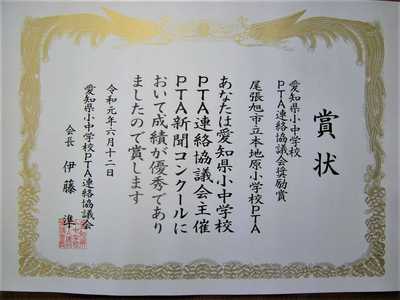 賞状
愛知県小中学校
PTA連絡協議会奨励賞
尾張旭市立本地原小学校PTA
あなたは愛知県小中学校
PTA連絡協議会主催
PTA新聞コンクールに
おいて成績が優秀であり
ましたので賞します
令和元年六月十二日
愛知県小中学校PTA連絡協議会
会長 伊藤 準